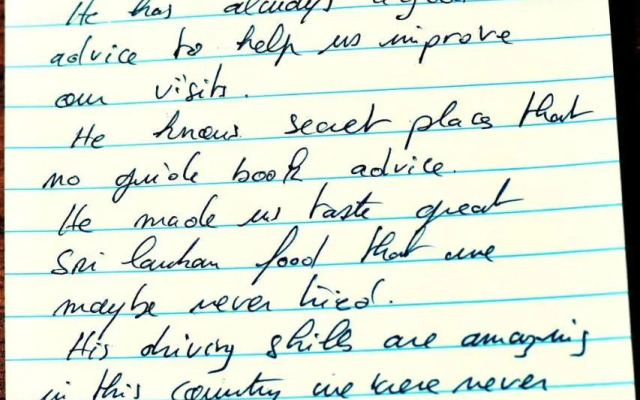 He has always a good
advice to help us improve
our visits.
He knows secret places that
no guide book advice.
He made us taste great
Sri lankan food that we
maybe never tried.
His driving skills are amazing
in this country we were never